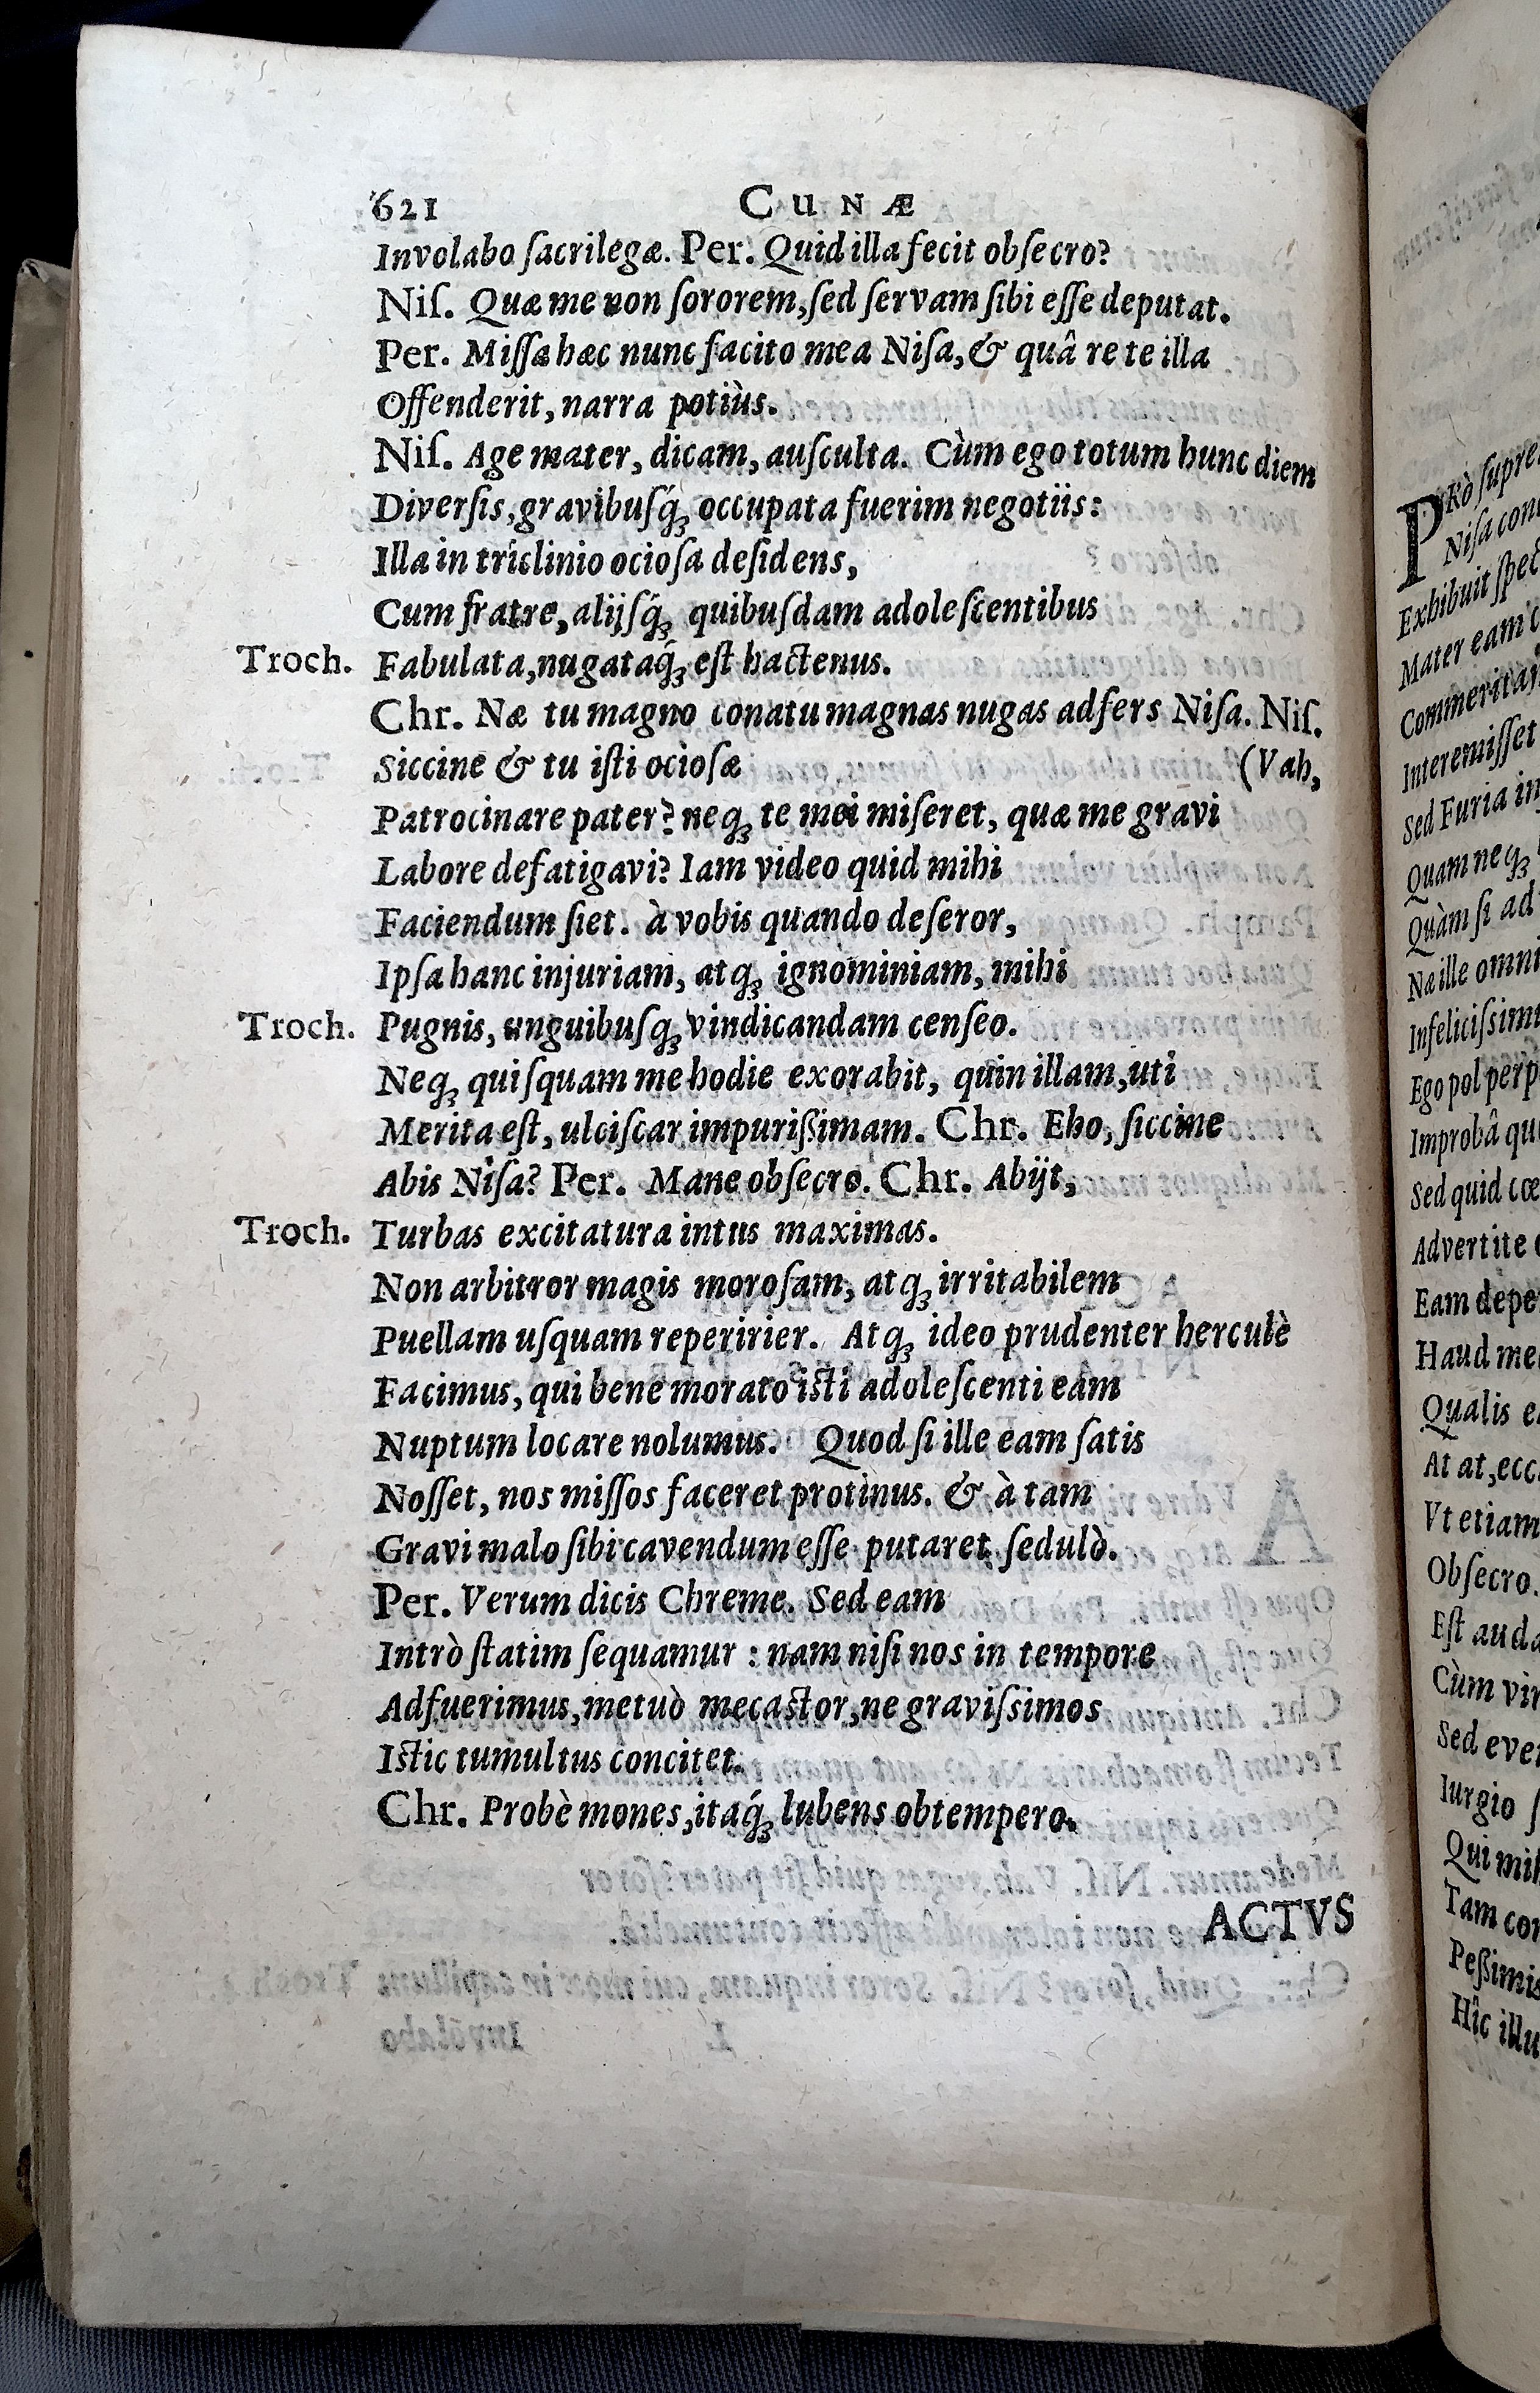 621 CUNÆ
Involabo ſacrilegæ. Per. Quid illa fecit obſecro?
Niſ. Quæ me non ſororem, ſed ſervam ſibi eſſe deputat.
Per. Miſſa hæc nunc facito mea Niſa, & quâ re te illa
Offenderit, narra potiùs.
Niſ. Age mater, dicam, auſculta. Cùm ego totum hunc diem
Diverſis, gravibuſq́ꝫ occupata fuerim negotiis:
Illa in triclinio ocioſa deſidens,
Cum fratre, alijſq́ꝫ quibuſdam adoleſcentibus
Troch. Fabulata, nugataq́ꝫ eſt hactenus.
Chr. Næ tu magno conatu magnas nugas adfers Niſa. Niſ.
Siccine & tu iſti ocioſæ (Vah,
Patrocinare pater? neqꝫ te mei miſeret, quæ me gravi
Labore defatigavi? Iam video quid mihi
Faciendum ſiet. à vobis quando deſeror,
Ipſa hanc injuriam, atqꝫ ignominiam, mihi
Troch. Pugnis, unguibuſqꝫ vindicandam cenſeo.
Neqꝫ quiſquam me hodie exorabit, quin illam, uti
Merita eſt, ulciſcar impurißimam. Chr. Eho, ſiccine
Abis Niſa? Per. Mane obſecro. Chr. Abijt,
Troch. Turbas excitatura intus maximas.
Non arbitror magis moroſam, atqꝫ irritabilem
Puellam uſquam reperirier. Atqꝫ ideo prudenter herculè
Facimus, qui bene morato iſti adoleſcenti eam
Nuptum locare nolumus. Quod ſi ille eam ſatis
Noſſet, nos miſſos faceret protinus. & à tam
Gravi malo ſibi cavendum eſſe putaret ſedulò.
Per. Verum dicis Chreme. Sed eam
Intrò ſtatim ſequamur : nam niſi nos in tempore
Adfuerimus, metuò mecaſtor, ne graviſsimos
Iſtic tumultus concitet.
Chr. Probè mones, itaq́ꝫ lubens obtempero.
ACTVS
PRò
Niſa
Exhibuit
Mater eam
Interemiſſet
Sed Furia
Quàm ſi ad
Næ ille
Ego pol
Improbâ
Sed quid
Advertite
Eam
Haud
Qualis
At at,
Vt etiam
Obſecro.
Eſt
Cùm
Sed
Iurgio
Qui
Tam
Hîc